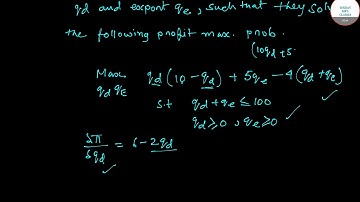 qd and export qe, such that they sol
the following profit max. prob.
(10qd +5
Max qd (10 - qd) + 5qe - 4(qd + qe)
qd qE
s.t qd + qe ≤ 100
qd ≥ 0, qe ≥ 0
δπ/δqd = 6 - 2qd